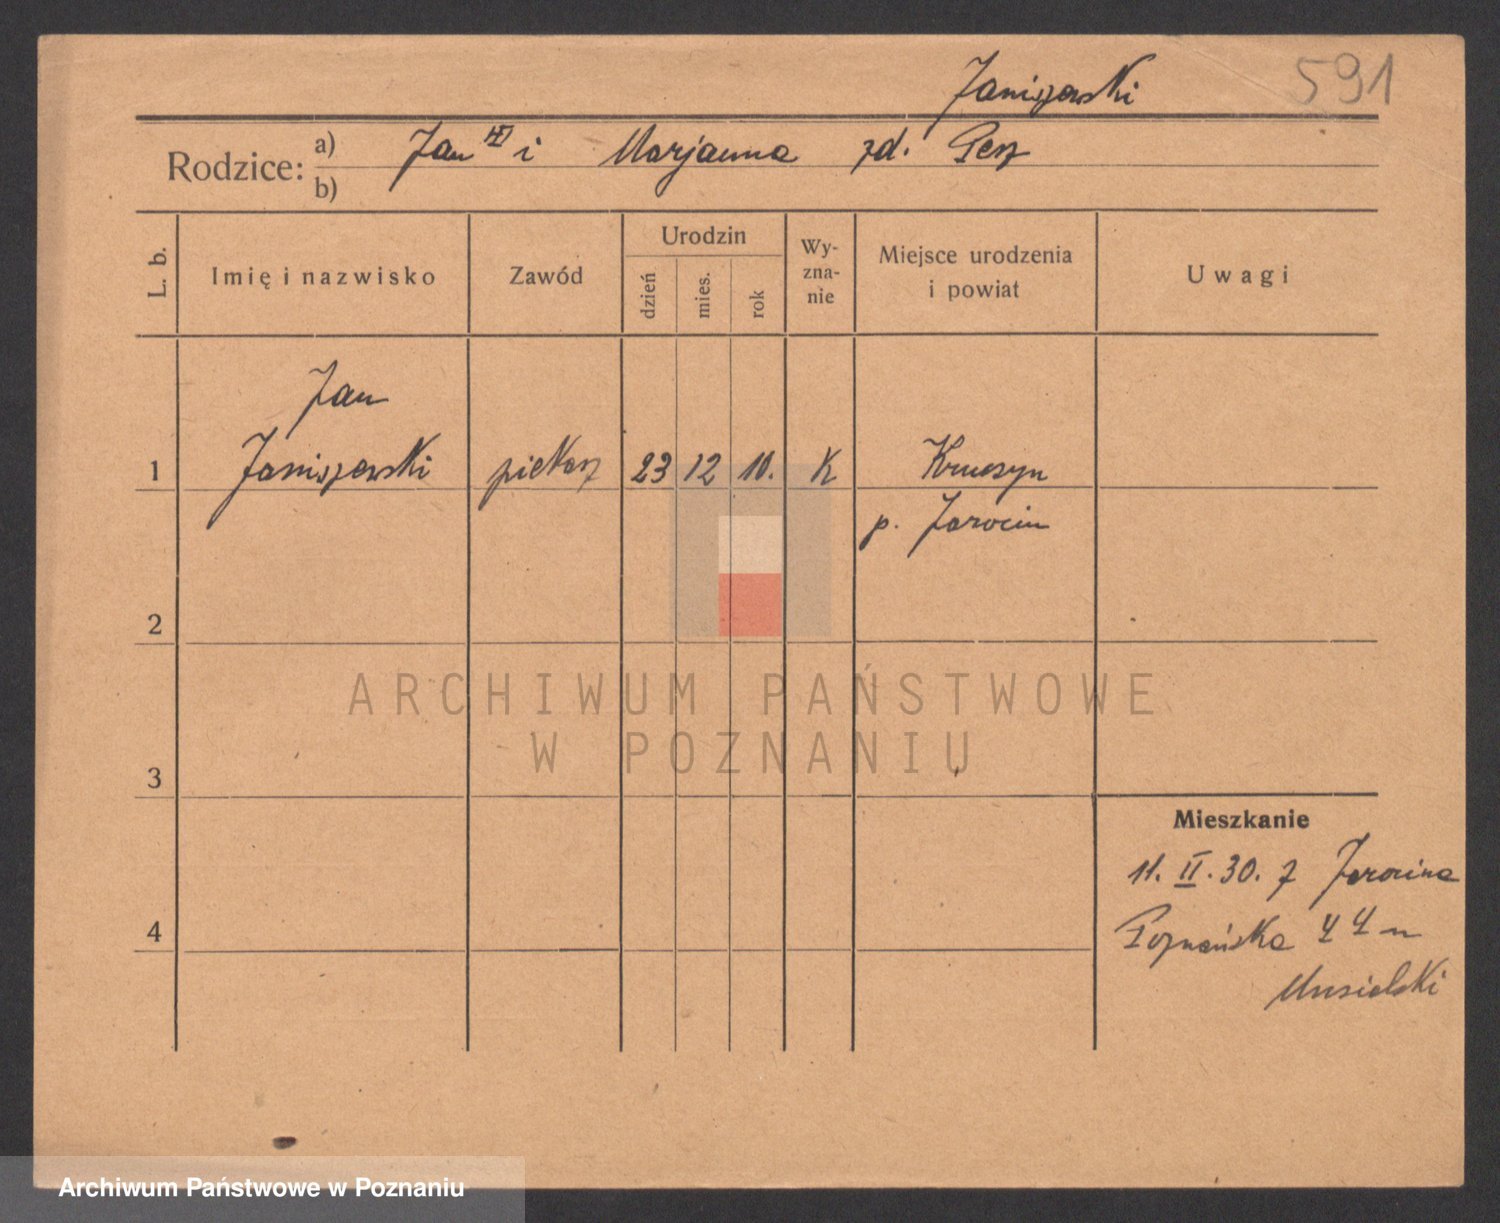 591
Janiszewski
Rodzice: a) Jan III i Marjanna zd. Pesz
b)
L. b. Imię i nazwisko Zawód Urodzin dzień mies. rok Wy-zna-nie Miejsce urodzenia i powiat Uwagi
Jan
1 Janiszewski piekarz 23 12 10. K Kruszyn
p. Jarocin
2
ARCHIWUM PAŃSTWOWE
W POZNANIU
3
Mieszkanie
11. II. 30. z Jarocina
4 Poznańska 44
Musielski
Archiwum Państwowe w Poznaniu